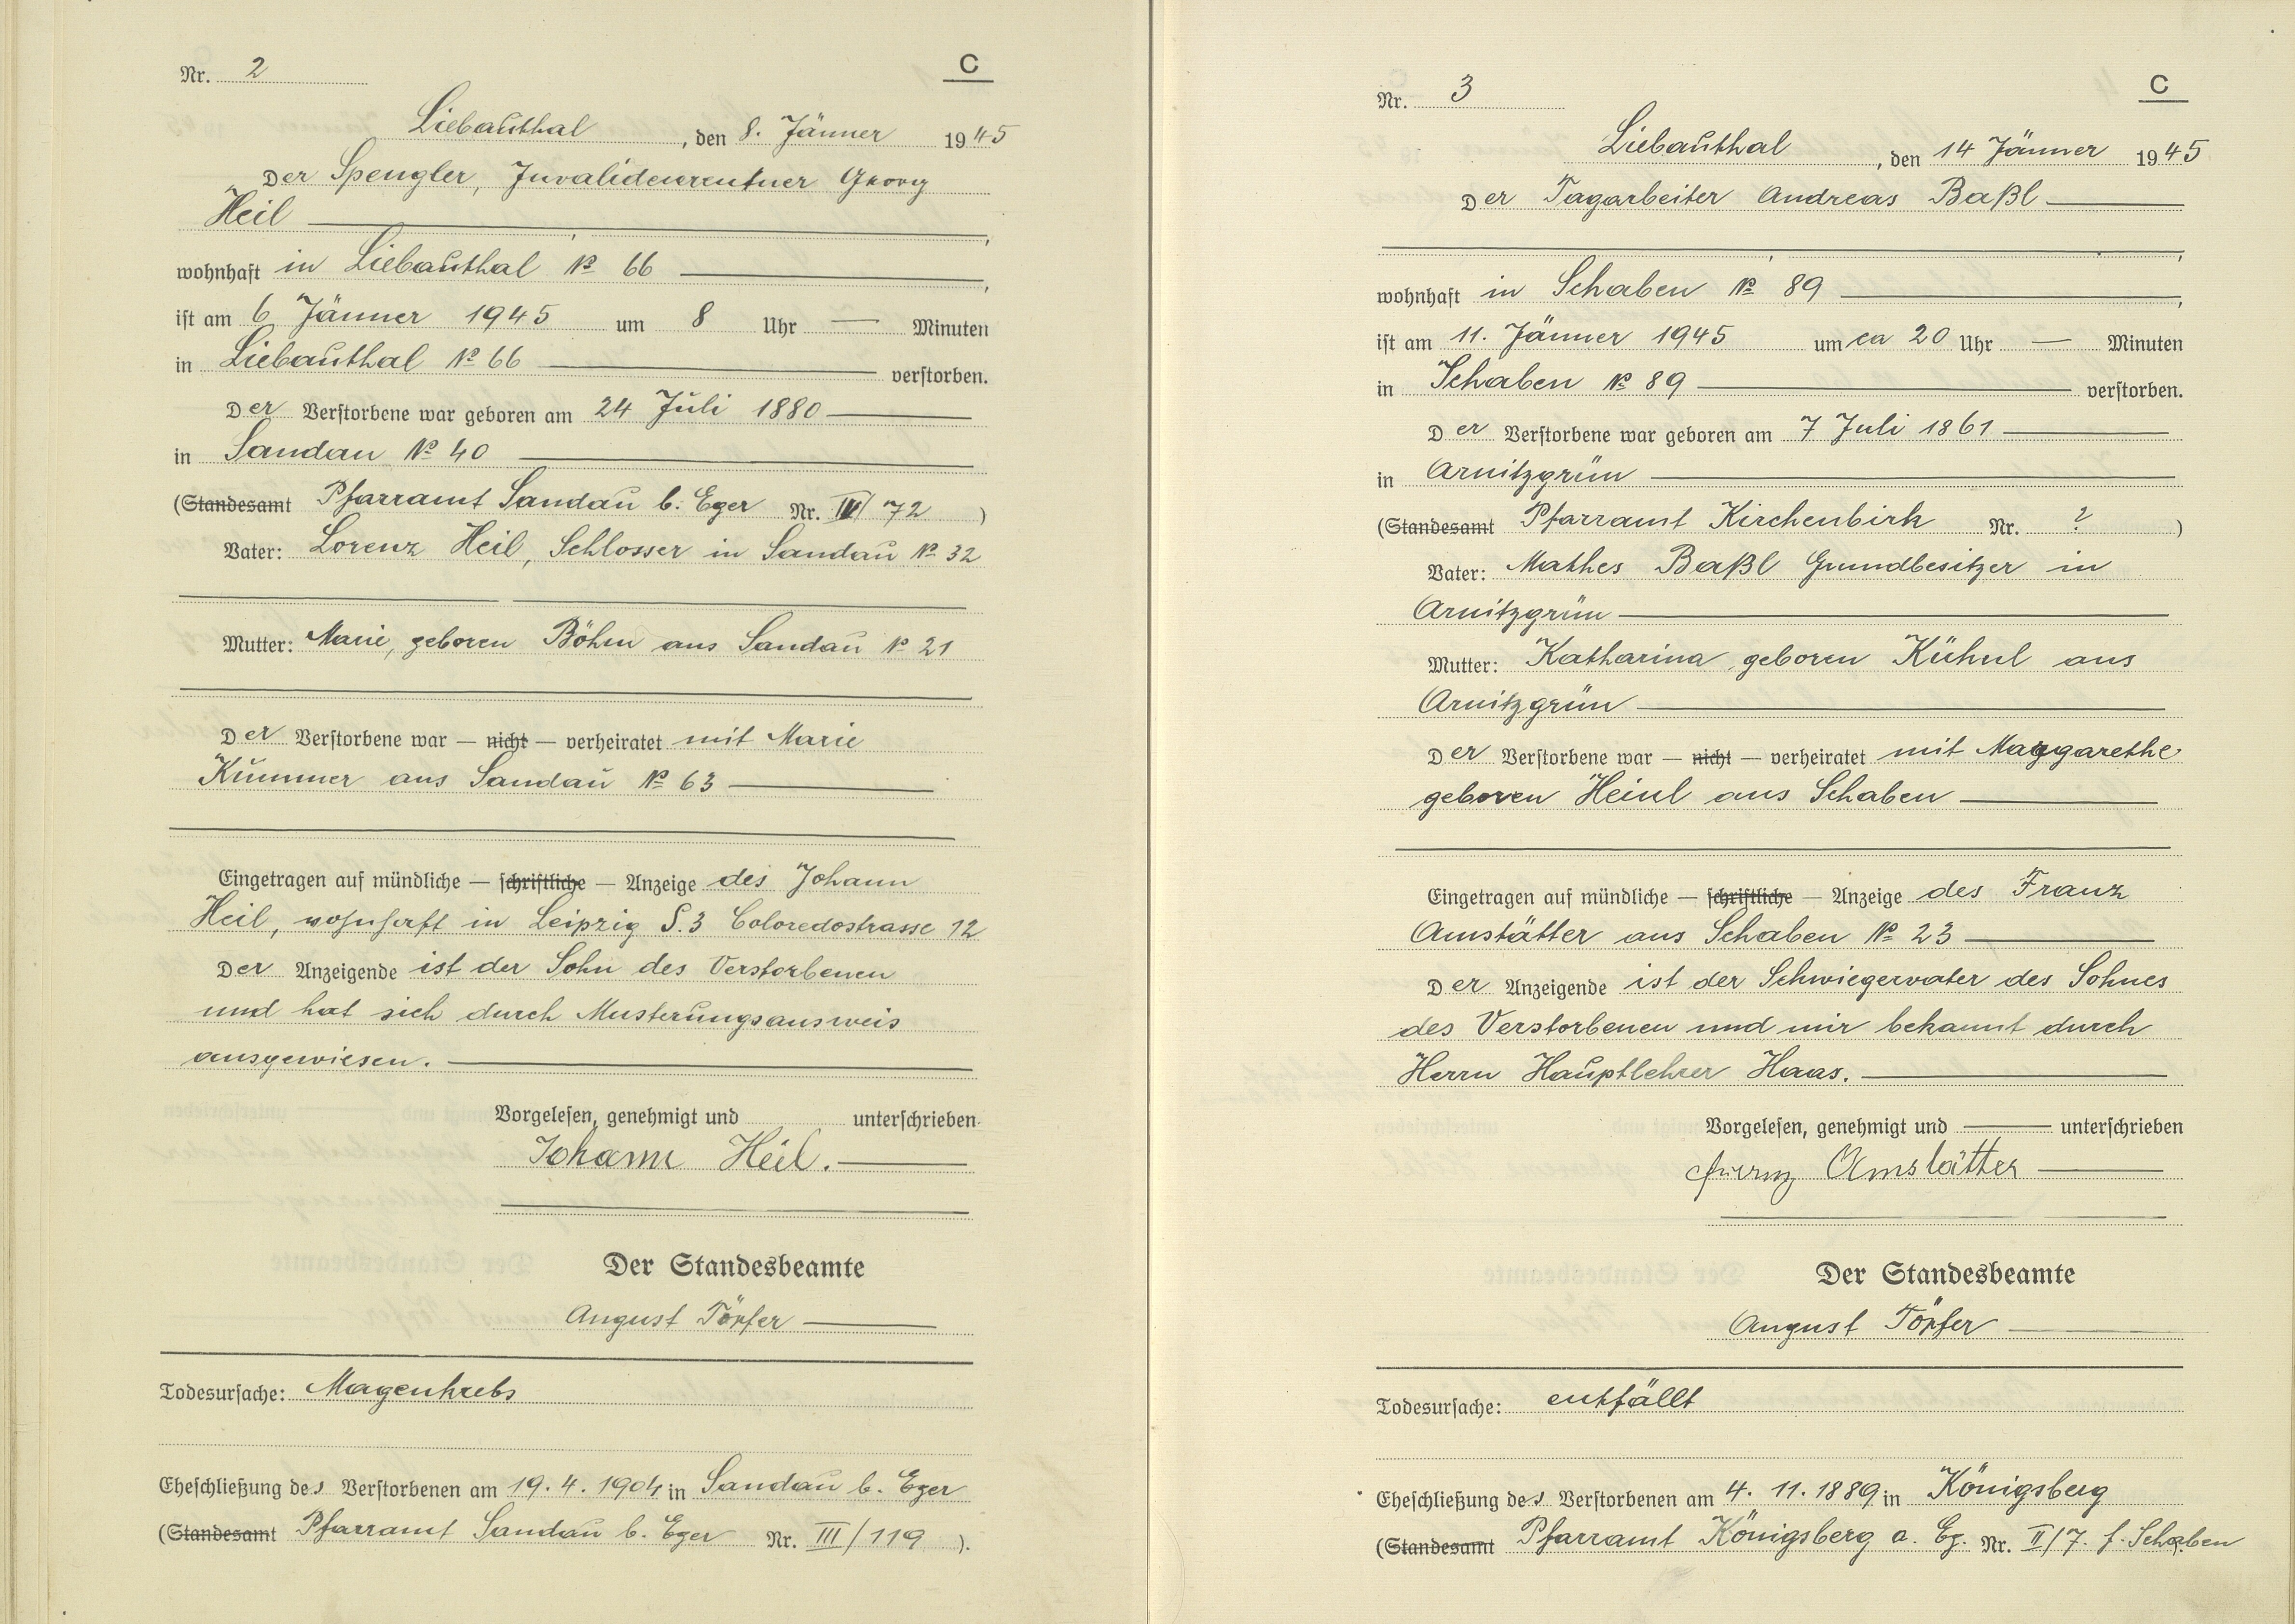 Nr. 2
C
Liebauthal, den 8. Jänner 1945
Der Spengler, Invalidenrentner Georg
Heil
wohnhaft in Liebauthal № 66
ist am 6 Jänner 1945 um 8 Uhr — Minuten
in Liebauthal № 66 verstorben.
Der Verstorbene war geboren am 24 Juli 1880
in Sandau № 40
(Standesamt Pfarramt Sandau b. Eger Nr. IV/72)
Vater: Lorenz Heil, Schlosser in Sandau № 32
Mutter: Marie, geboren Böhm aus Sandau № 21
Der Verstorbene war — nicht — verheiratet mit Marie
Kummer aus Sandau № 63
Eingetragen auf mündliche — schriftliche — Anzeige des Johann
Heil, wohnhaft in Leipzig S.3 Coloredostrasse 12
Der Anzeigende ist der Sohn des Verstorbenen
und hat sich durch Musterungsausweis
ausgewiesen.
Vorgelesen, genehmigt und unterschrieben
Johann Heil.
Der Standesbeamte
August Töpfer
Todesursache: Magenkrebs
Eheschließung des Verstorbenen am 19. 4. 1904 in Sandau b. Eger
(Standesamt Pfarramt Sandau b. Eger Nr. III/119).
Nr. 3
C
Liebauthal, den 14 Jänner 1945
Der Tagarbeiter Andreas Baßl
wohnhaft in Schaben № 89
ist am 11. Jänner 1945 um ca 20 Uhr — Minuten
in Schaben № 89 verstorben.
Der Verstorbene war geboren am 7 Juli 1861
in Arnitzgrün
(Standesamt Pfarramt Kirchenbirk Nr. ?)
Vater: Mathes Baßl Grundbesitzer in
Arnitzgrün
Mutter: Katharina geboren Kühnl aus
Arnitzgrün
Der Verstorbene war — nicht — verheiratet mit Margarethe
geboren Heinl aus Schaben
Eingetragen auf mündliche — schriftliche — Anzeige des Franz
Amstätter aus Schaben № 23
Der Anzeigende ist der Schwiegervater des Sohnes
des Verstorbenen und mir bekannt durch
Herrn Hauptlehrer Haas.
Vorgelesen, genehmigt und — unterschrieben
Franz Amstätter
Der Standesbeamte
August Töpfer
Todesursache: entfällt
Eheschließung des Verstorbenen am 4. 11. 1889 in Königsberg
(Standesamt Pfarramt Königsberg a. Eg. Nr. II/7. f. Schaben